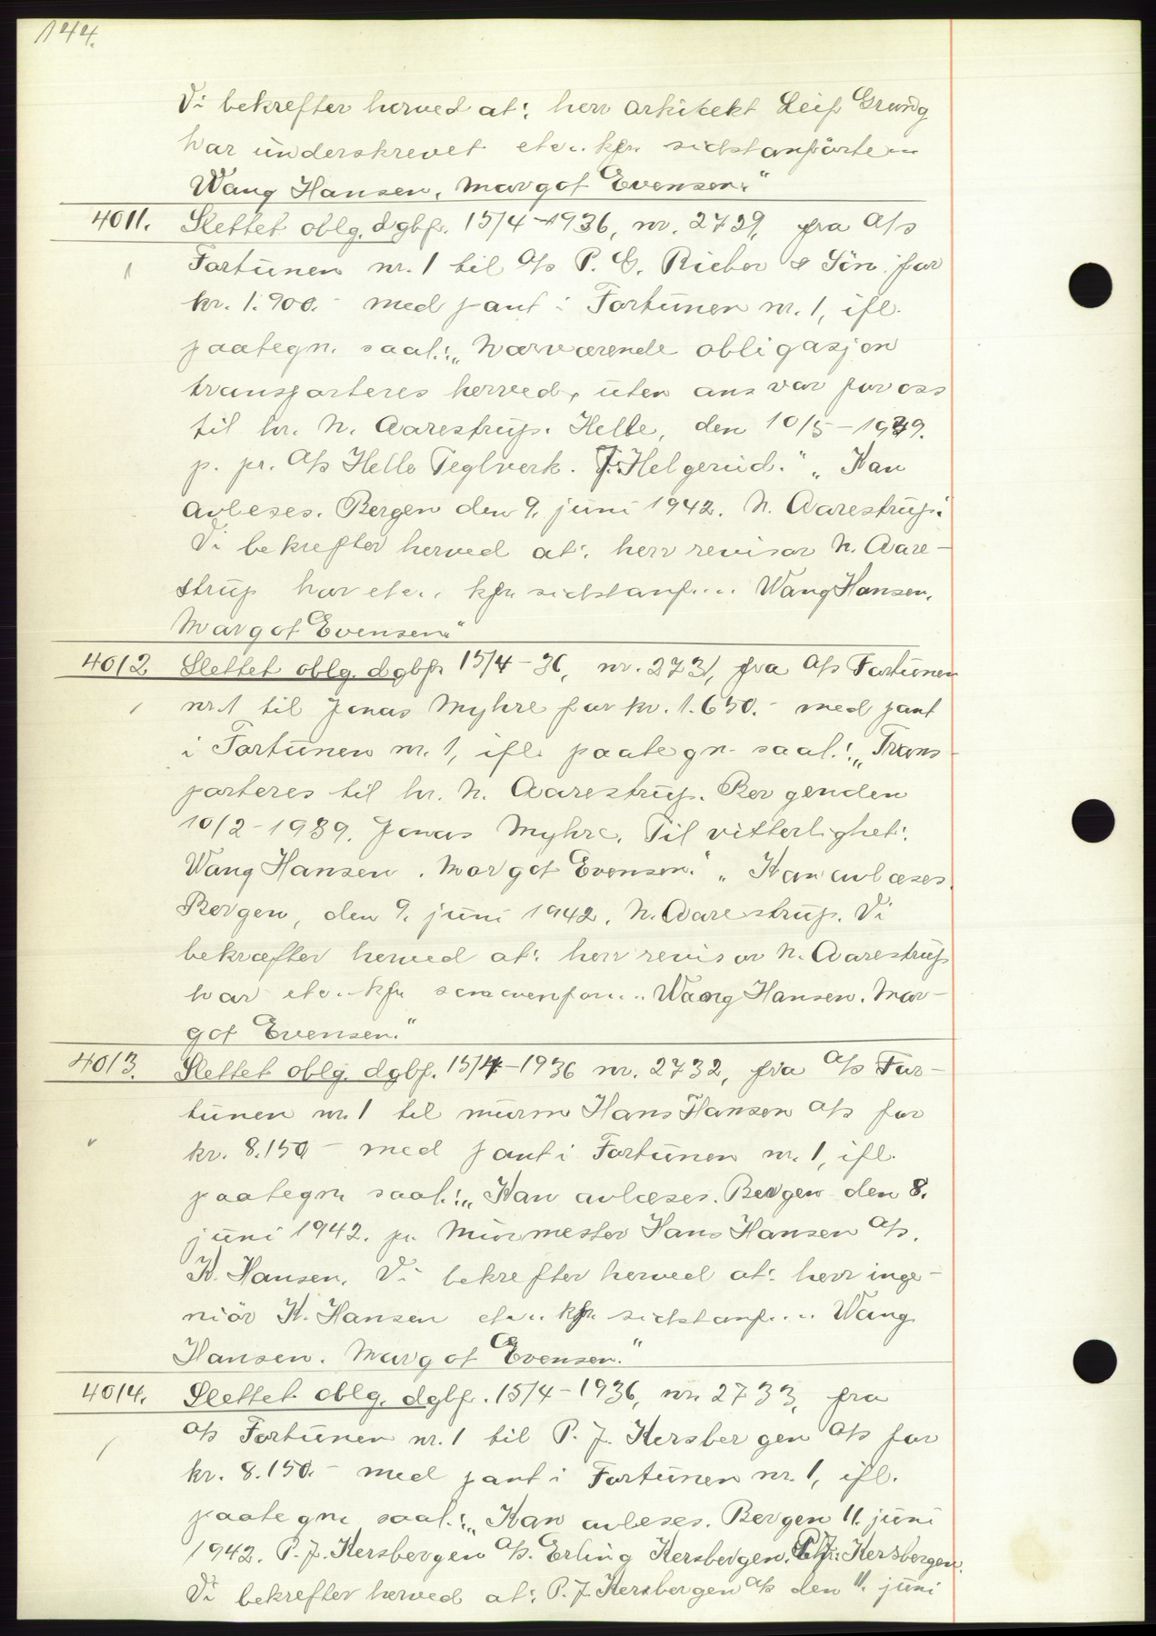 144.
Vi bekrefter herved at: herr arkitekt Leif Grung
har underskrevet etc.. kfr. sidstanförte...
Wang Hansen. Margot Evensen."
4011. Slettet oblg. dgbf. 15/4-1936, nr. 2729, fra A/s
Fortunen nr. 1 til A/s P. G. Rieber & Sön for
kr. 1.900.- med pant i Fortunen nr. 1, ifl.
paategn. saal.: "Nærværende obligasjon
transporteres herved, uten ansvar for oss
til hr. N. Aarestrup. Helle, den 10/5-1939.
p. pr. A/s Helle Teglverk. J. Helgerud." "Kan
avleses. Bergen den 9. juni 1942. N. Aarestrup."
Vi bekrefter herved at: herr revisor N. Aare-
strup har etc.. kfr sidstanf.... Wang Hansen.
Margot Evensen."
4012 Slettet oblg. dgbf. 15/4-36, nr. 2731, fra A/s Fortunen
nr. 1 til Jonas Myhre for kr. 1.650.- med pant
i Fortunen nr. 1, ifl. paategn. saal.: "Trans-
porteres til hr. N. Aarestrup. Bergen den
10/2-1939. Jonas Myhre. Til vitterlighet:
Wang Hansen. Margot Evensen." "Kan avlæses.
Bergen, den 9. juni 1942. N. Aarestrup. Vi
bekræfter herved at: herr revisor N. Aarestrup
har etc.. kfr sammenfor.... Wang Hansen. Mar-
got Evensen."
4013. Slettet oblg. dgbf. 15/4-1936 nr. 2732, fra A/s For-
tunen nr. 1 til murm Hans Hansen A/s for
kr. 8.150- med pant i Fortunen nr. 1, ifl.
paategn. saal.: "Kan avlæses. Bergen den 8.
juni 1942. pr. Murmester Hans Hansen A/s.
K. Hansen. Vi bekrefter herved at: herr inge-
niör K. Hansen etc.. kfr. sidstanf.... Wang
Hansen. Margot Evensen."
4014. Slettet oblg. dgbf. 15/4-1936, nr. 2733, fra
A/s Fortunen nr. 1 til P. J. Kersbergen A/s for
kr. 8.150.- med pant i Fortunen nr. 1, ifl.
paategn. saal.: "Kan avleses. Bergen 11. juni
1942. P. J. Kersbergen A/s. Erling Kersbergen. Kersbergen.
Vi bekrefter herved at: P. J. Kersbergen A/s den 11. juni